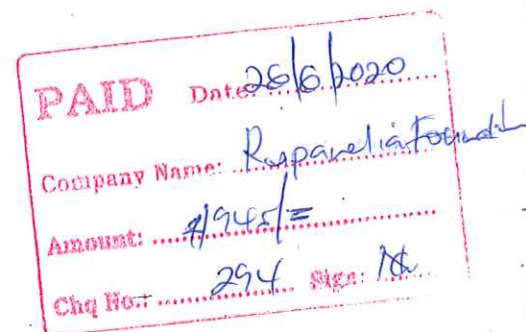 PAID Date: 26/6/2020
Company Name: Rupanelia Foundat
Amount: #/945/=
Chq No.: 294 Sign: